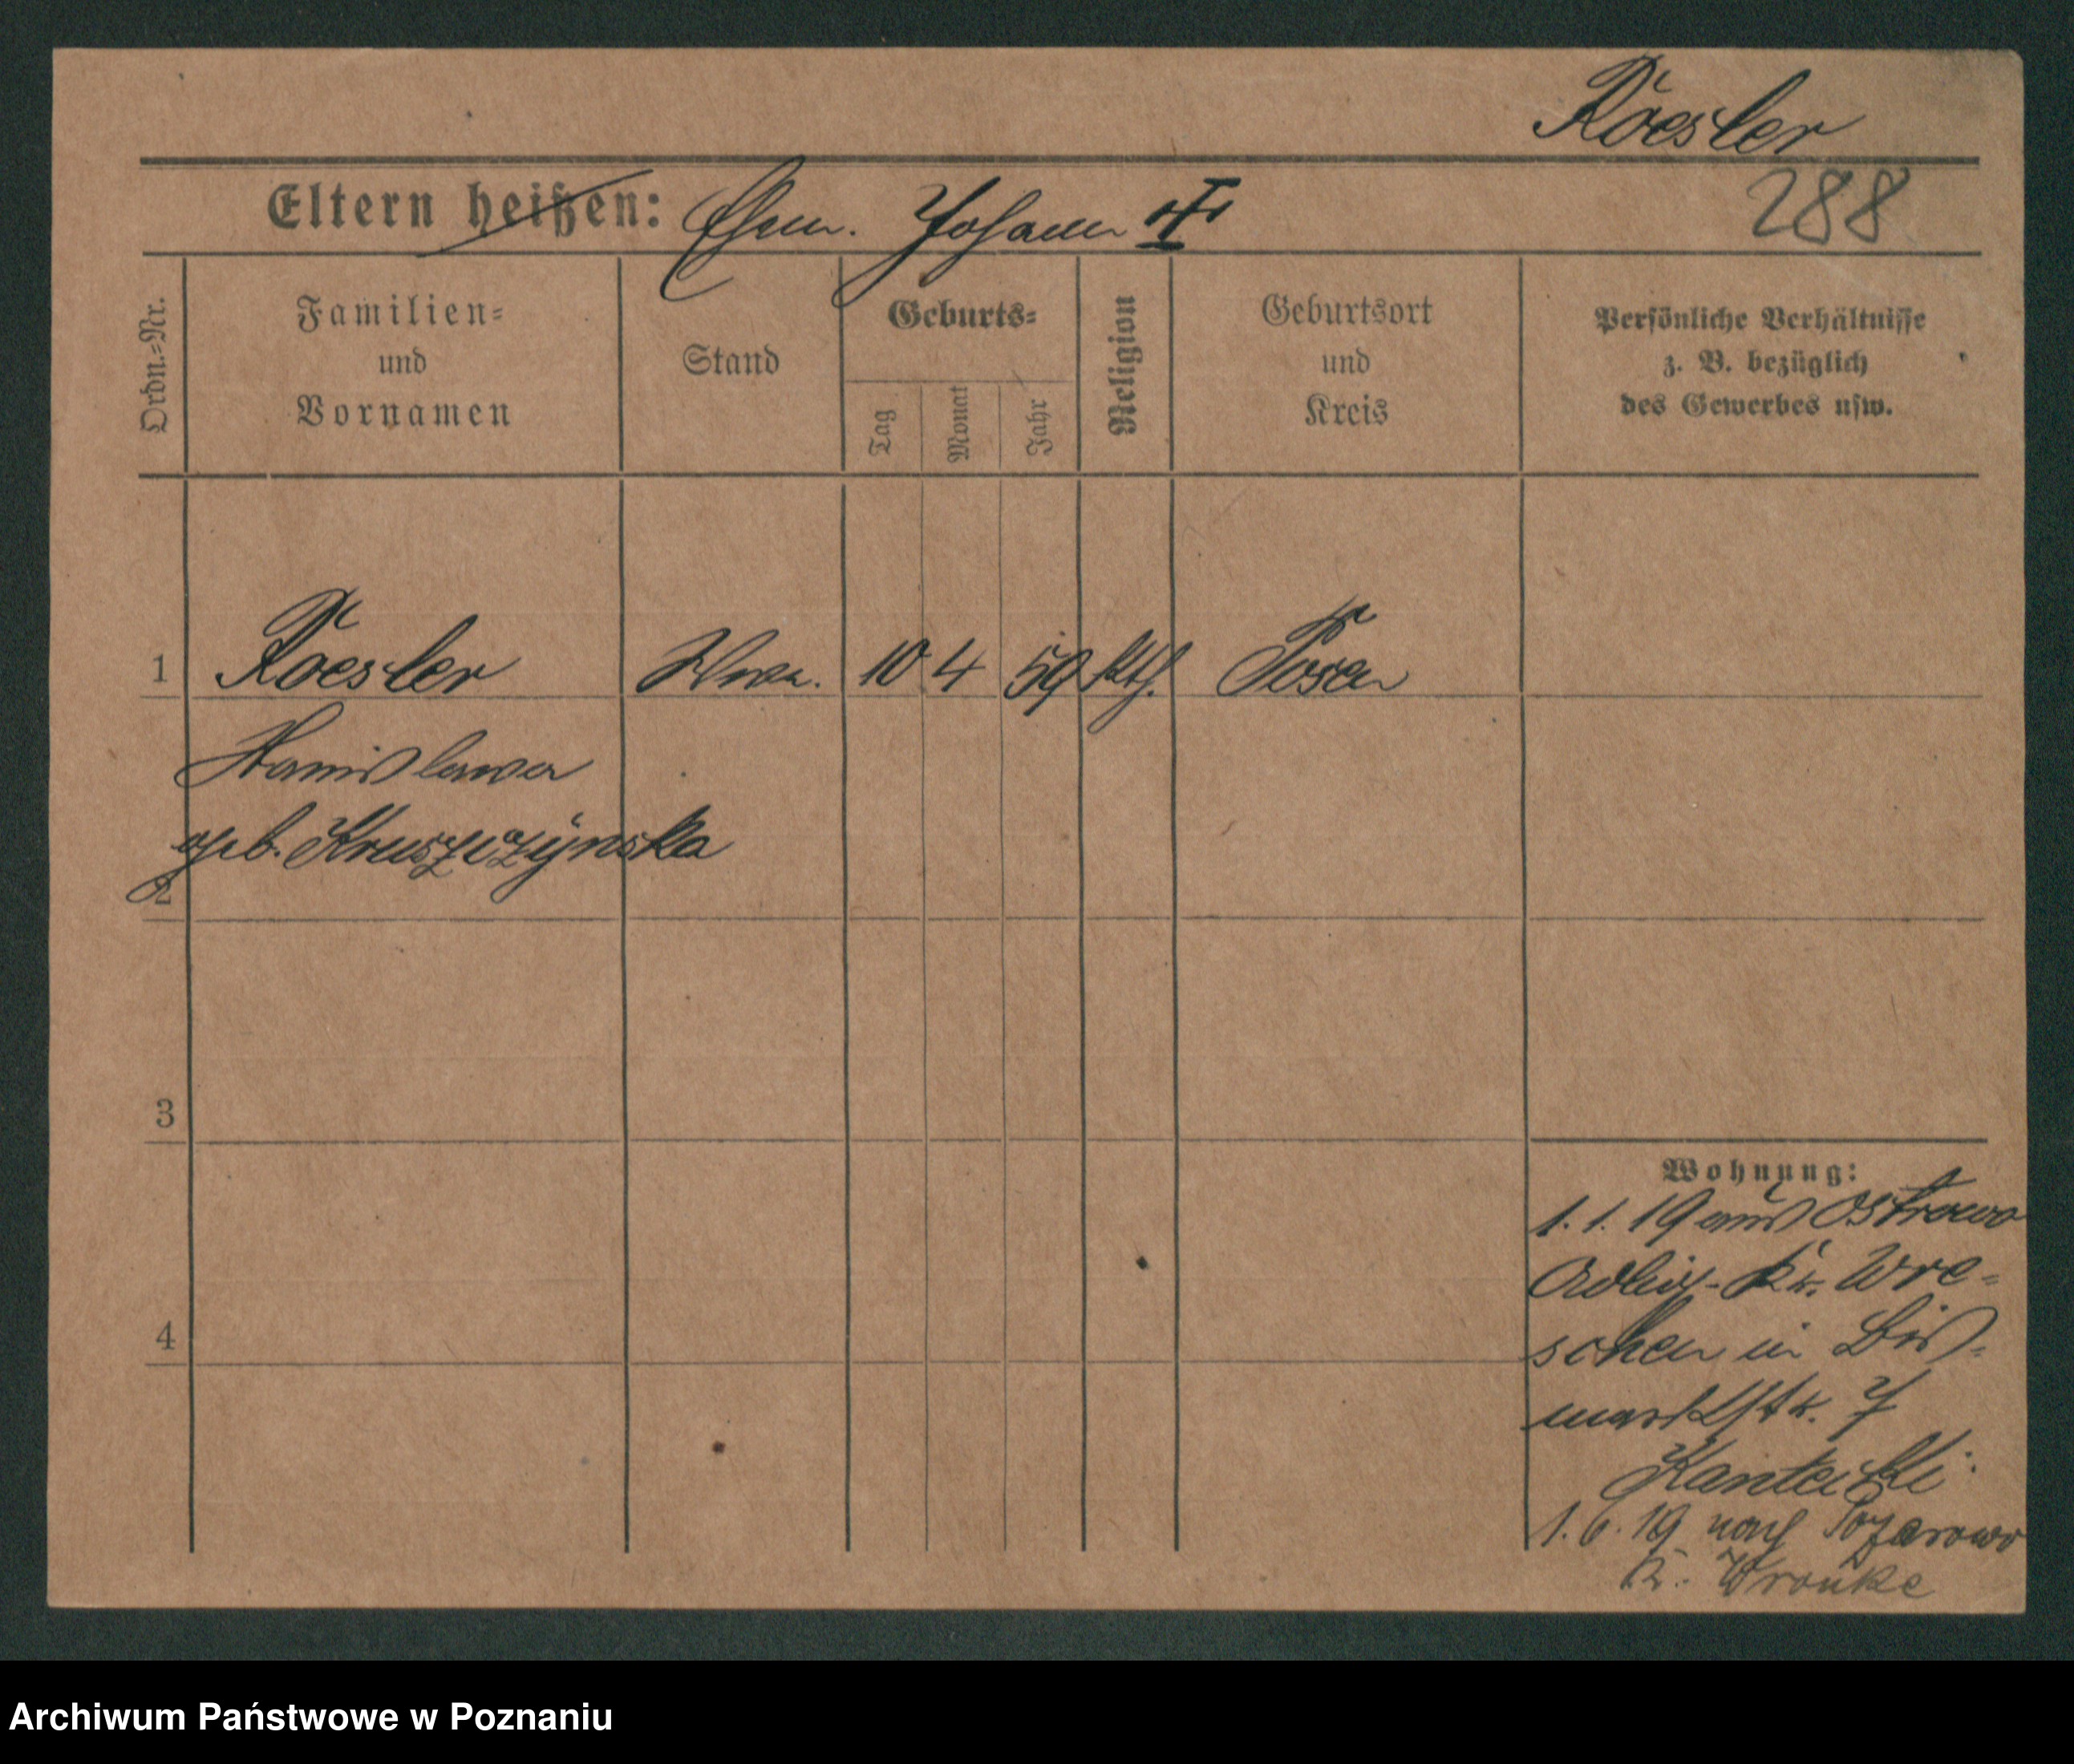 Roesler
Eltern heißen: Ehem. Johann
288
Ordn.=Nr.
Familien=
und
Vornamen
Stand
Geburts=
Tag
Monat
Jahr
Religion
Geburtsort
und
Kreis
Persönliche Verhältnisse
z. B. bezüglich
des Gewerbes usw.
1 Roesler Wwe. 10 4 59 kth. Posen
Stanislawa
geb. Kruszczynska
2
3
4
Wohnung:
1. 1. 19 aus Ostrowo
Adlig- Kr. Wre-
schen in Bis-
markstr. 7
Kantecki
1. 6. 19 nach Pozarowo
K. Wronke
Archiwum Państwowe w Poznaniu